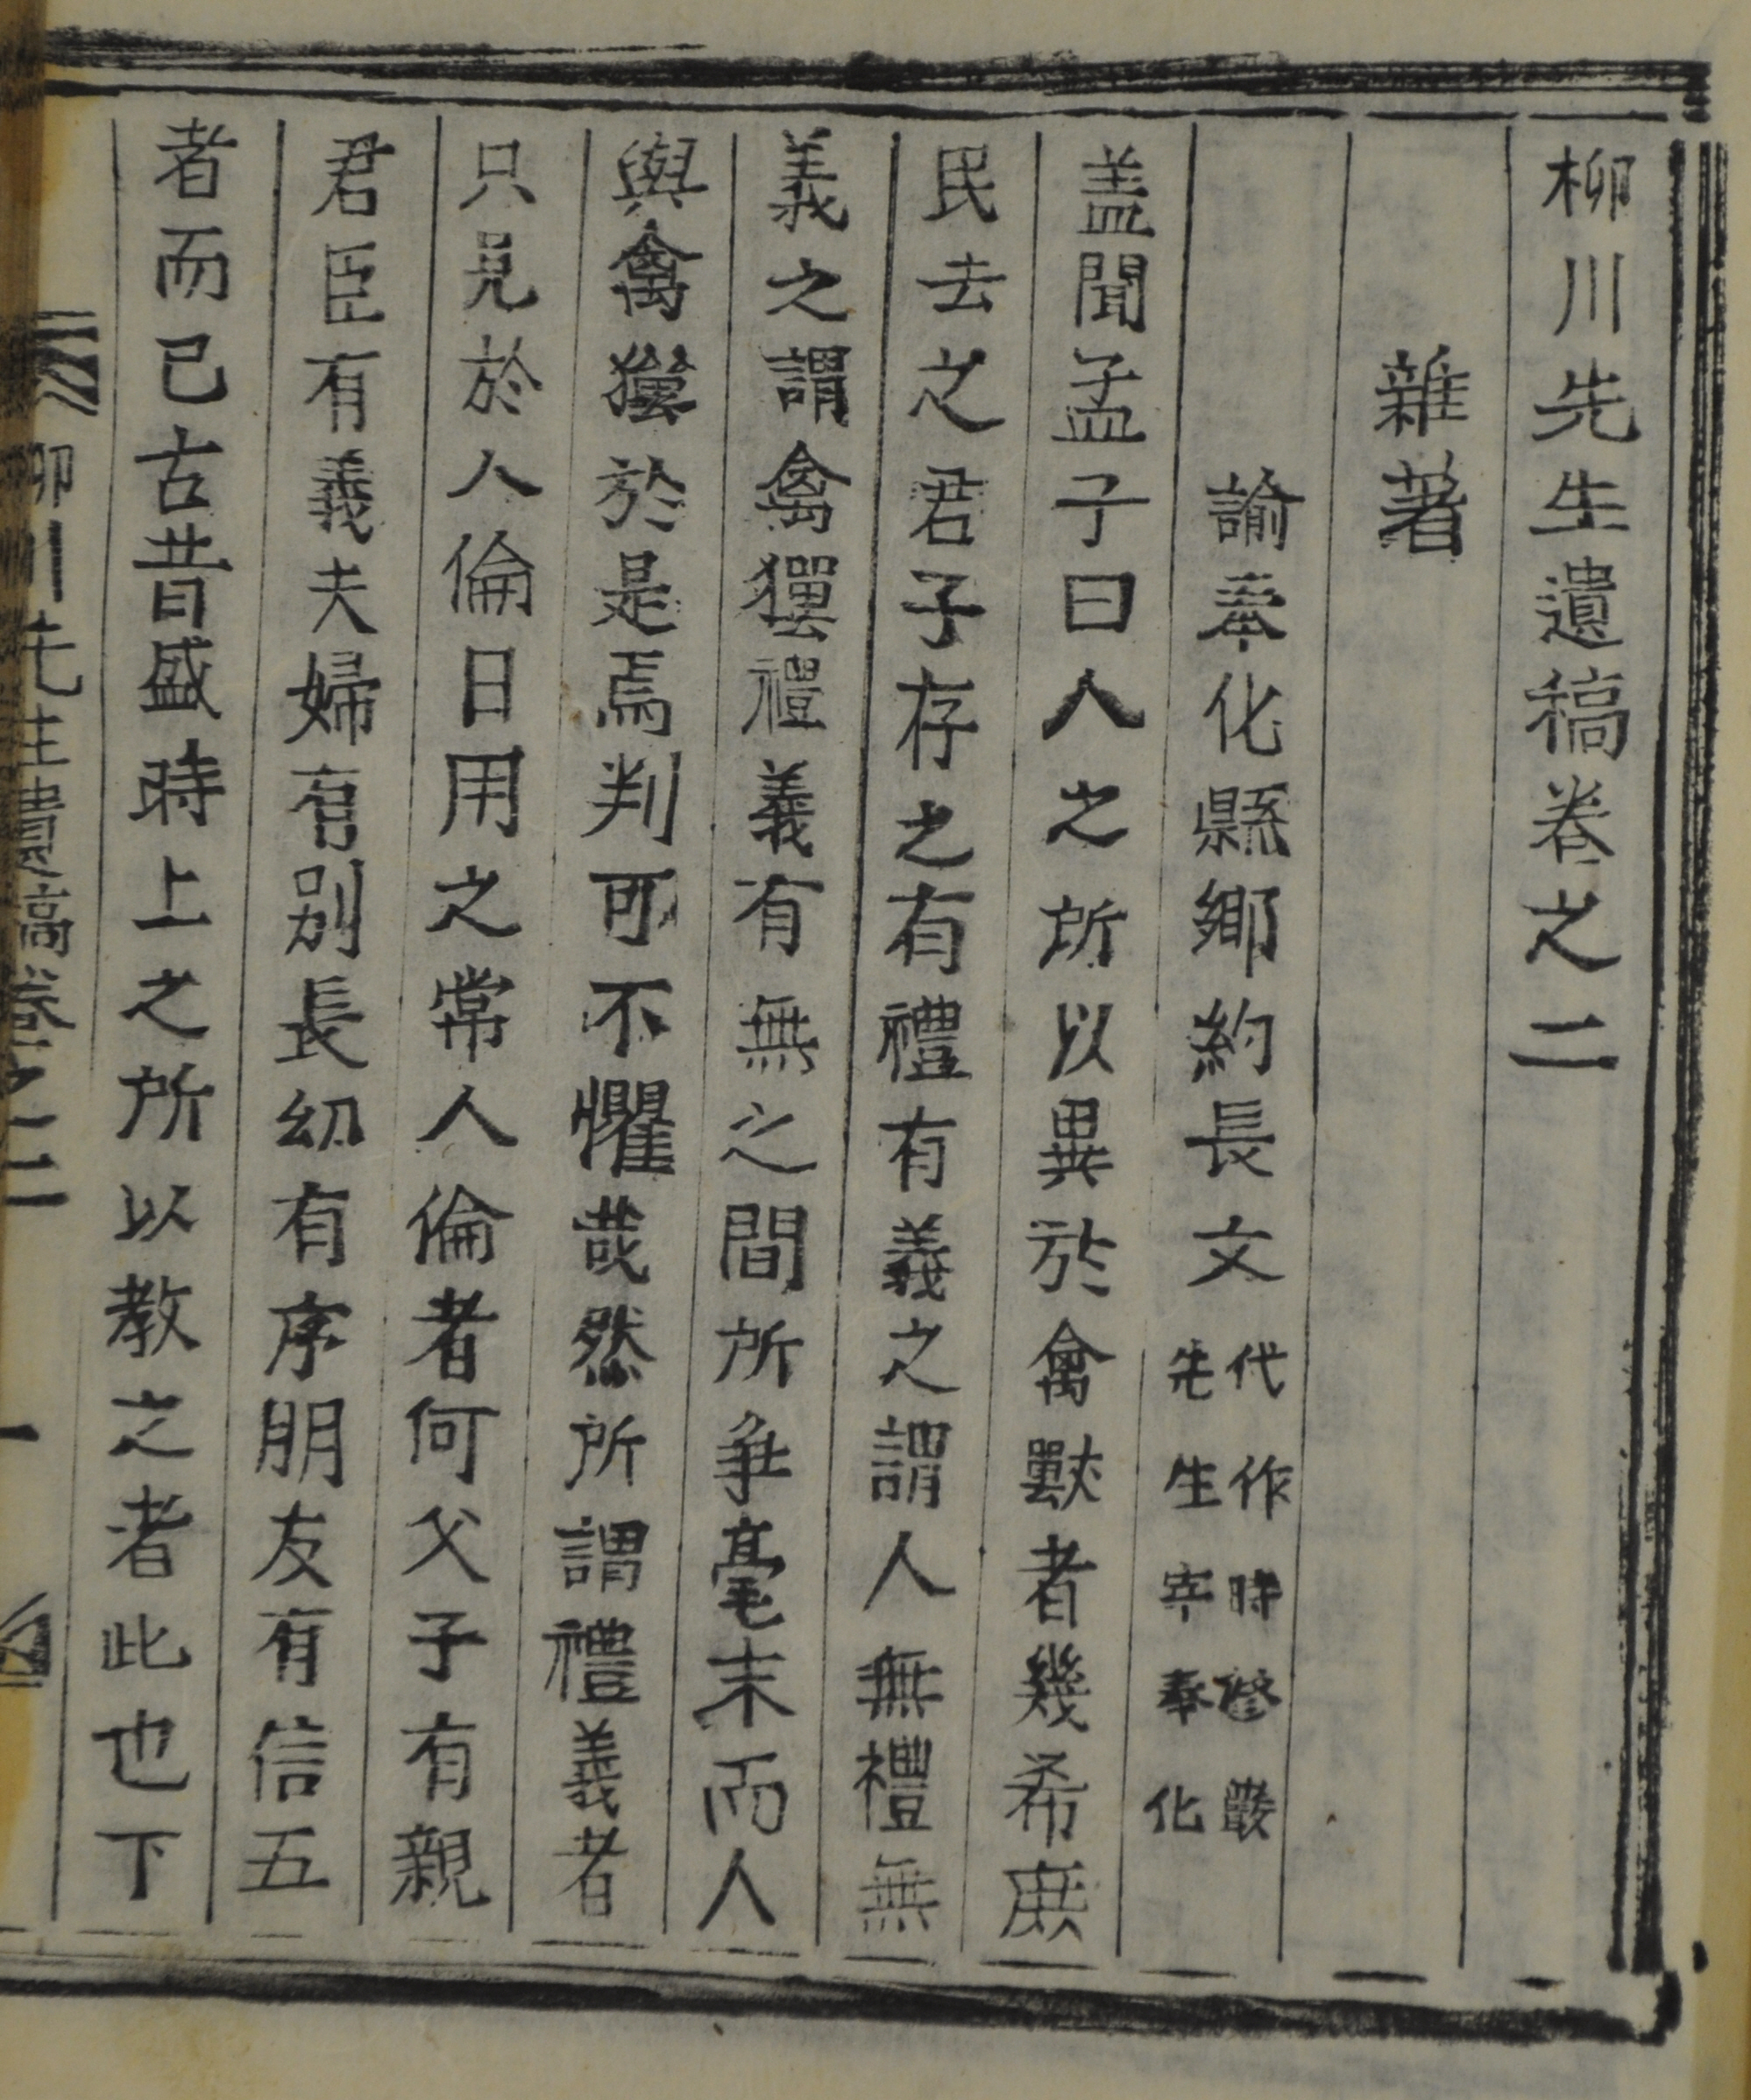 柳川先生遺稿卷之二
雜著
諭奉化縣鄉約長文 代作時修巖先生宰奉化
盖聞孟子曰人之所以異於禽獸者幾希庶
民去之君子存之有禮有義之謂人無禮無
義之謂禽獸禮義有無之間所爭毫末而人
與禽獸於是焉判可不懼哉然所謂禮義者
只見於人倫日用之常人倫者何父子有親
君臣有義夫婦有別長幼有序朋友有信五
者而已古昔盛時上之所以教之者此也下
柳川先生遺稿卷之二 一